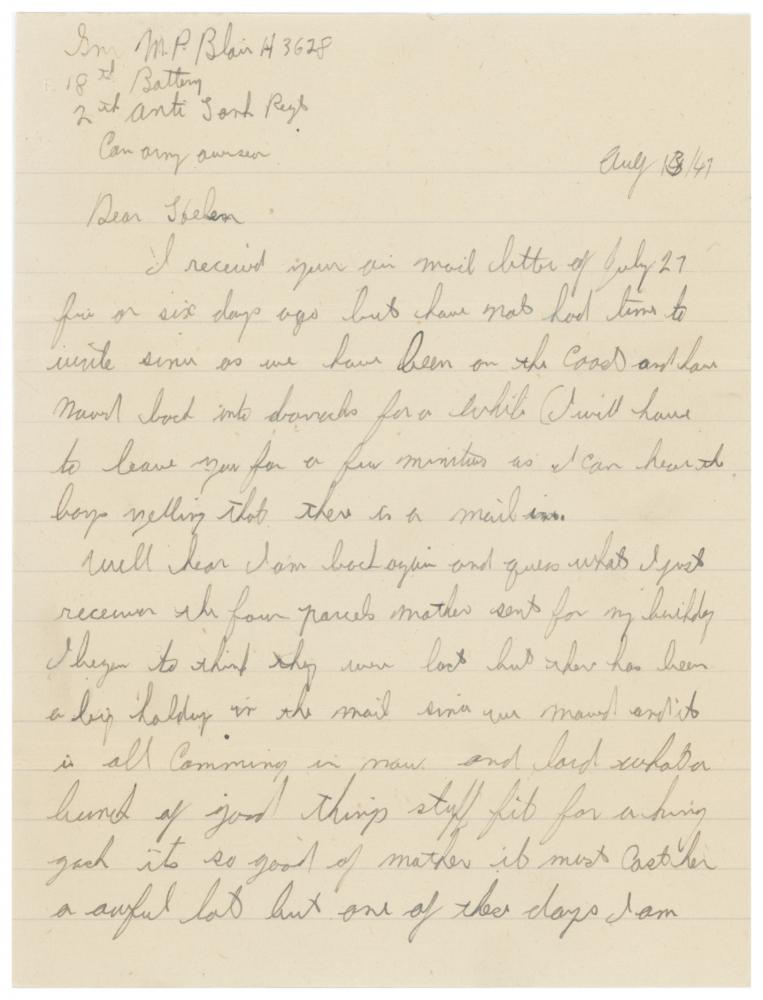 Gnr M.P. Blair H 3628
18th Battery
2nd Anti Tank Regt
Can army oversea
Aug 13/41
Dear Helen
I received your air mail letter of July 27
five or six days ago but have not had time to
write since as we have been on the Coast and have
moved back into barracks for a while (I will have
to leave you for a few minites as I can hear the
boys yelling that there is a mail in.
Well hear I am back again and guess what I just
received the four parcels mother sent for my birthday
I began to think they were lost but there has been
a big holdup in the mail since we moved and it
is all Comming in now. and lord what a
bunch of good things stuff fit for a king
gosh its so good of mother it must Cost her
a awful lot but one of these days I am